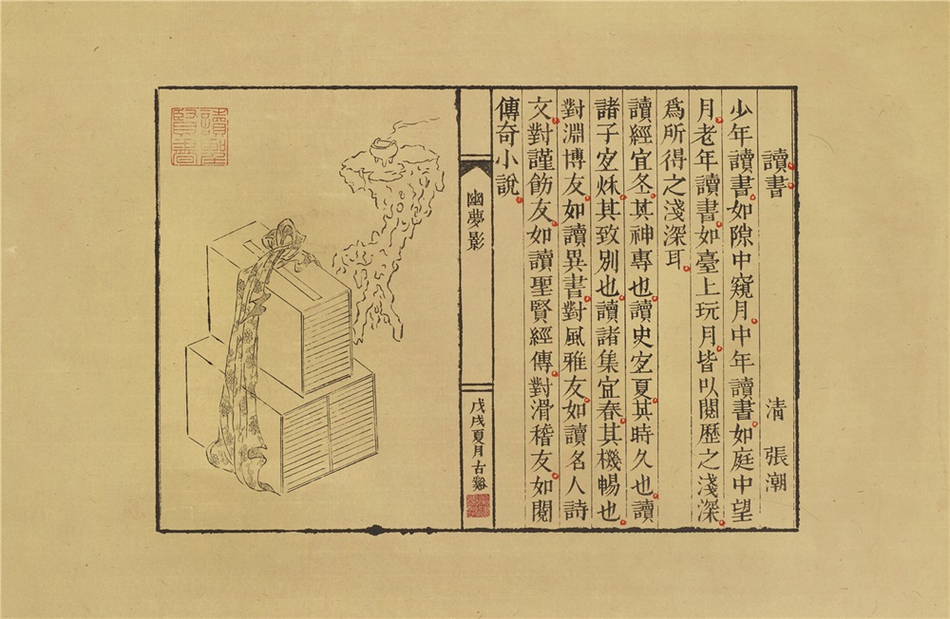 讀書 清 張潮
少年讀書如隙中窺月中年讀書如庭中望
月老年讀書如臺上玩月皆㠯閱歷之淺深
爲所得之淺深耳
讀經宜冬其神專也讀史宐夏其時久也讀
諸子宐秌其致別也讀諸集宜春其機暢也
對淵博友如讀異書對風雅友如讀名人詩
文對謹飭友如讀聖賢經傳對滑稽友如閱
傳奇小說
幽夢影
戊戌夏月古谿
讀聖賢書